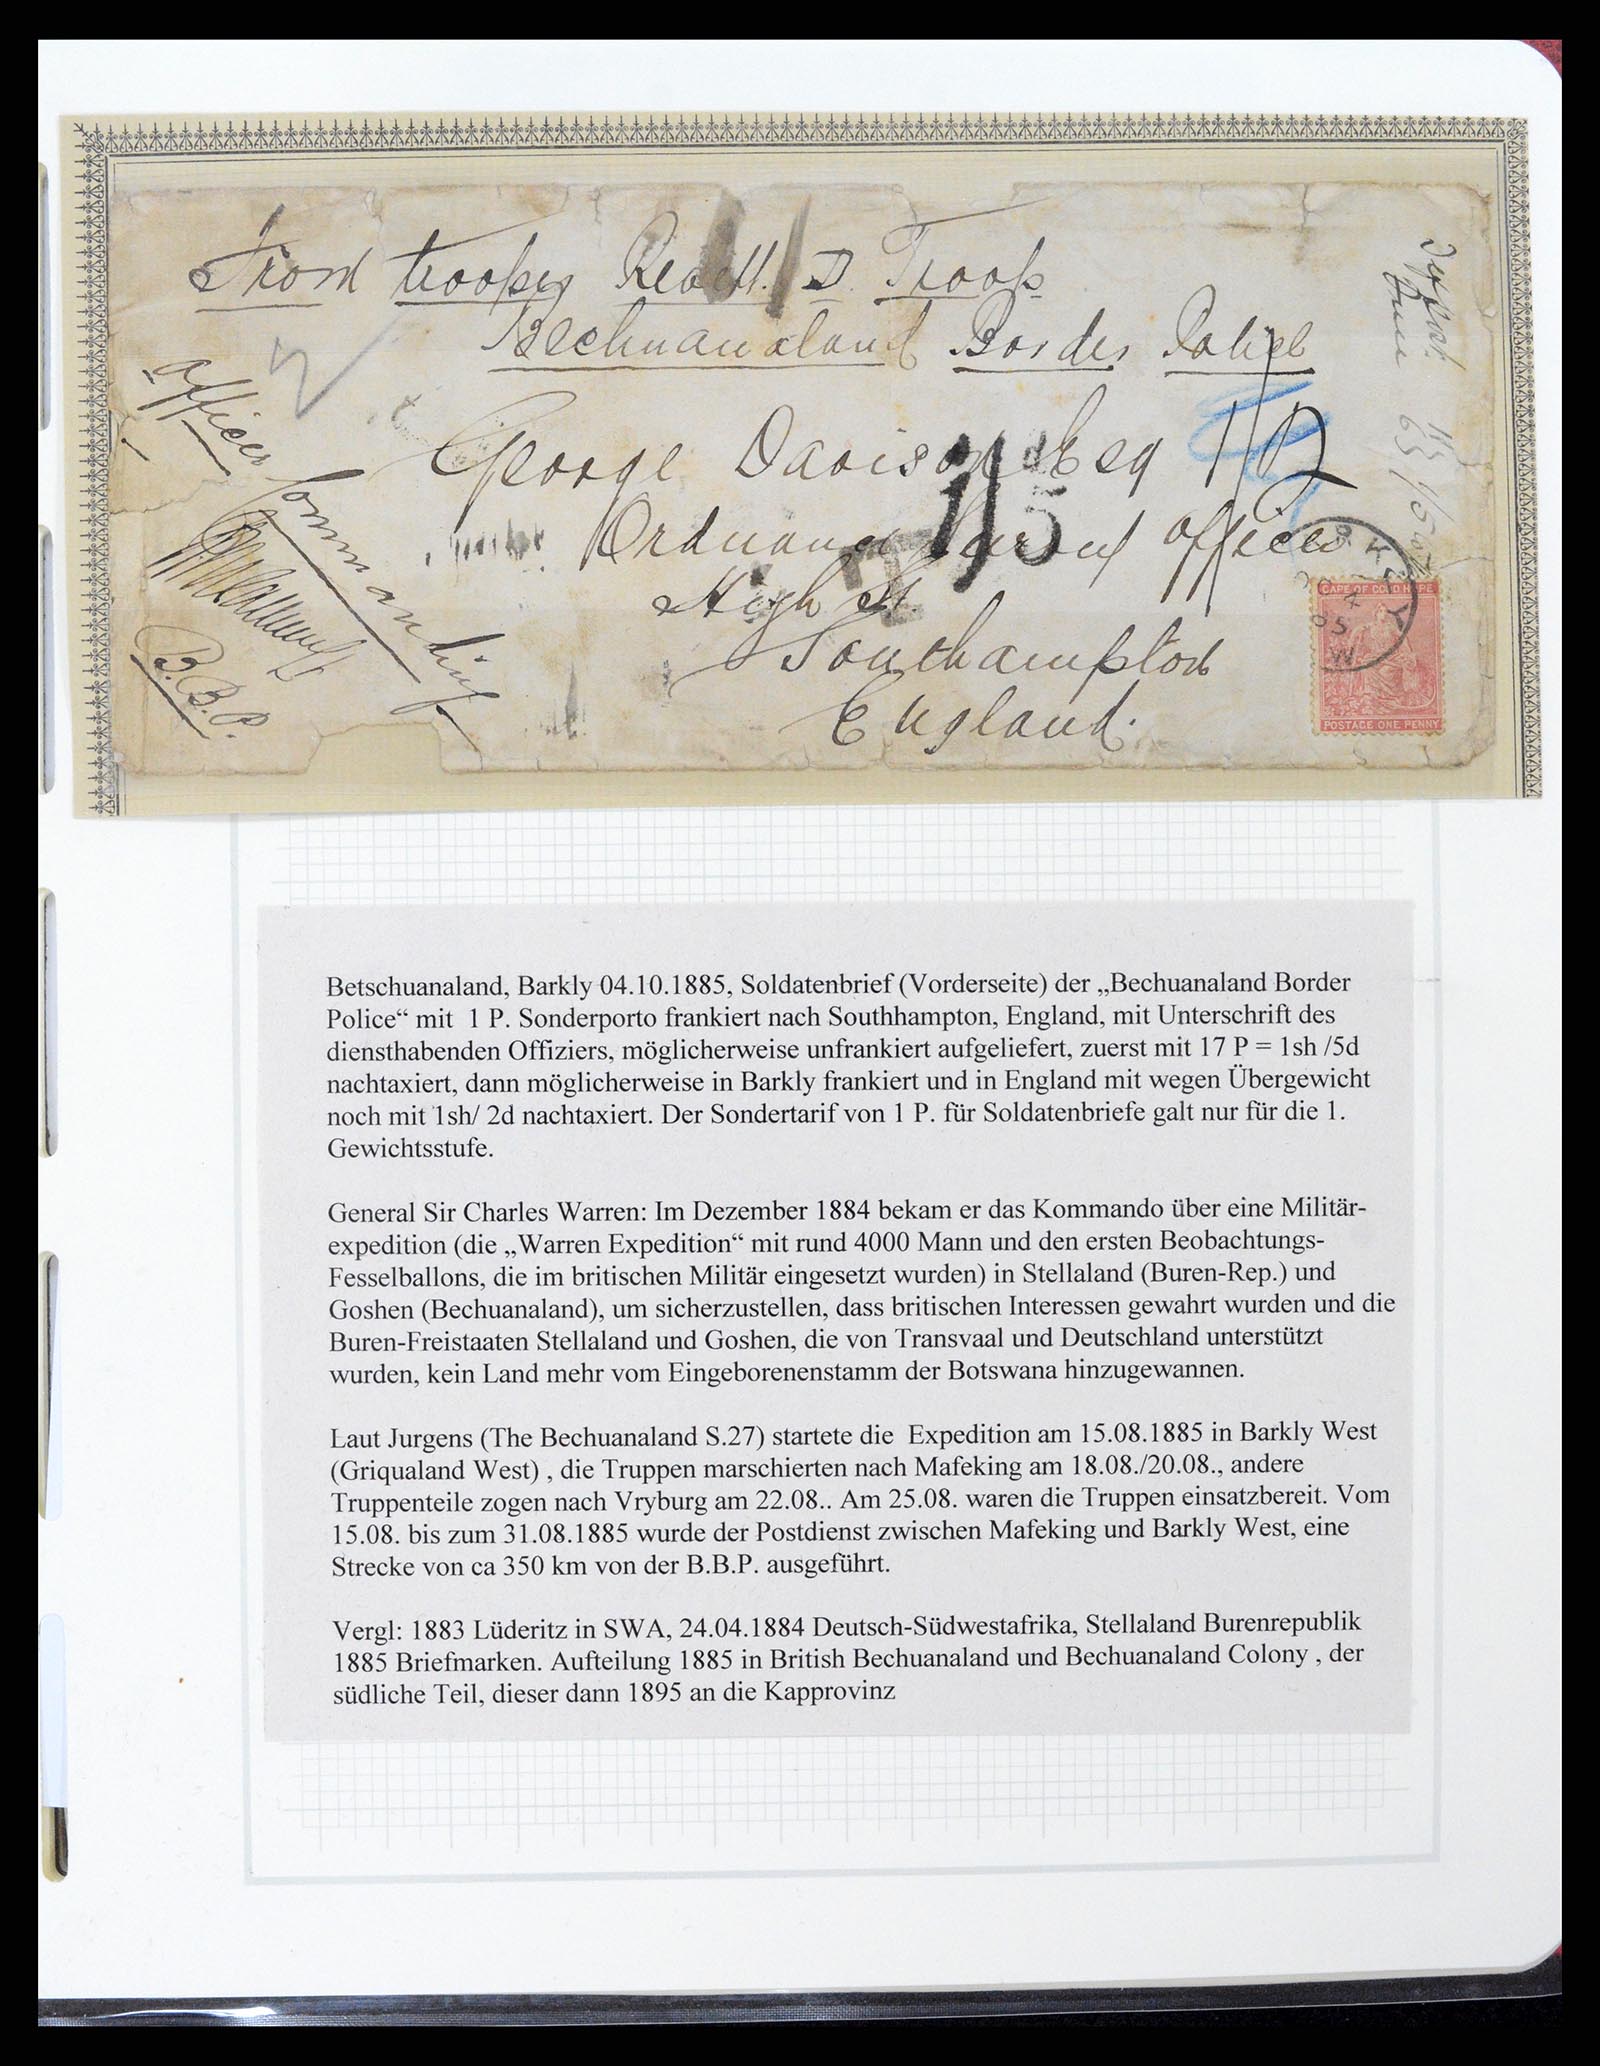 From trooper D. Troop
Bechuanaland Border Police
George Davison Esq 1/2
Ordnance Survey Office
High St.
Southampton
England.
Officer Commanding
B.B.P.
1/5
T
BARKLY W
OC 4 85
CAPE OF GOOD HOPE
POSTAGE ONE PENNY
Betschuanaland, Barkly 04.10.1885, Soldatenbrief (Vorderseite) der „Bechuanaland Border
Police“ mit 1 P. Sonderporto frankiert nach Southhampton, England, mit Unterschrift des
diensthabenden Offiziers, möglicherweise unfrankiert aufgeliefert, zuerst mit 17 P = 1sh /5d
nachtaxiert, dann möglicherweise in Barkly frankiert und in England mit wegen Übergewicht
noch mit 1sh/ 2d nachtaxiert. Der Sondertarif von 1 P. für Soldatenbriefe galt nur für die 1.
Gewichtsstufe.
General Sir Charles Warren: Im Dezember 1884 bekam er das Kommando über eine Militär-
expedition (die „Warren Expedition“ mit rund 4000 Mann und den ersten Beobachtungs-
Fesselballons, die im britischen Militär eingesetzt wurden) in Stellaland (Buren-Rep.) und
Goshen (Bechuanaland), um sicherzustellen, dass britischen Interessen gewahrt wurden und die
Buren-Freistaaten Stellaland und Goshen, die von Transvaal und Deutschland unterstützt
wurden, kein Land mehr vom Eingeborenenstamm der Botswana hinzugewannen.
Laut Jurgens (The Bechuanaland S.27) startete die Expedition am 15.08.1885 in Barkly West
(Griqualand West) , die Truppen marschierten nach Mafeking am 18.08./20.08., andere
Truppenteile zogen nach Vryburg am 22.08.. Am 25.08. waren die Truppen einsatzbereit. Vom
15.08. bis zum 31.08.1885 wurde der Postdienst zwischen Mafeking und Barkly West, eine
Strecke von ca 350 km von der B.B.P. ausgeführt.
Vergl: 1883 Lüderitz in SWA, 24.04.1884 Deutsch-Südwestafrika, Stellaland Burenrepublik
1885 Briefmarken. Aufteilung 1885 in British Bechuanaland und Bechuanaland Colony , der
südliche Teil, dieser dann 1895 an die Kapprovinz